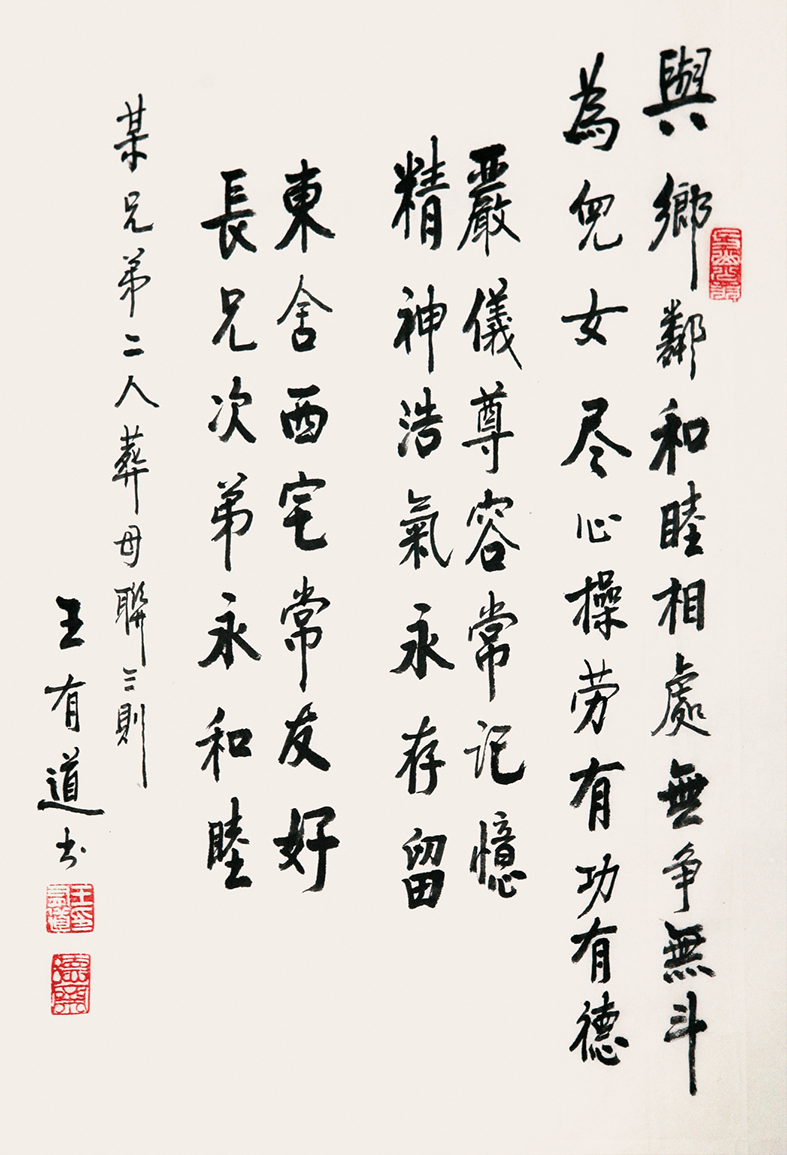 與鄉鄰和睦相處無争無斗
為兒女尽心操劳有功有德
嚴儀尊容常记憶
精神浩氣永存留
東舍西宅常友好
長兄次弟永和睦
某兄弟二人葬母聯三則
王有道书